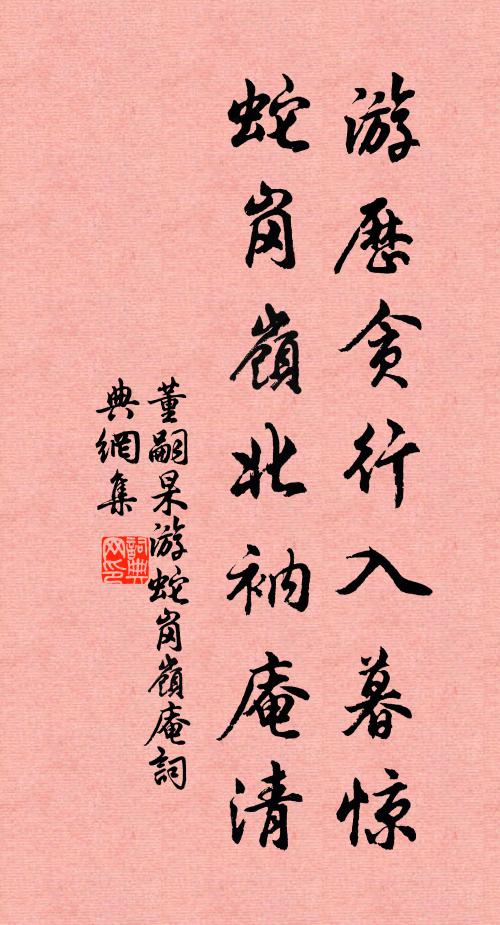 游歷貪行入暮惊
蛇岗嶺北衲庵清
董嗣杲游蛇岗嶺庵詞
典網集
詞典
网印